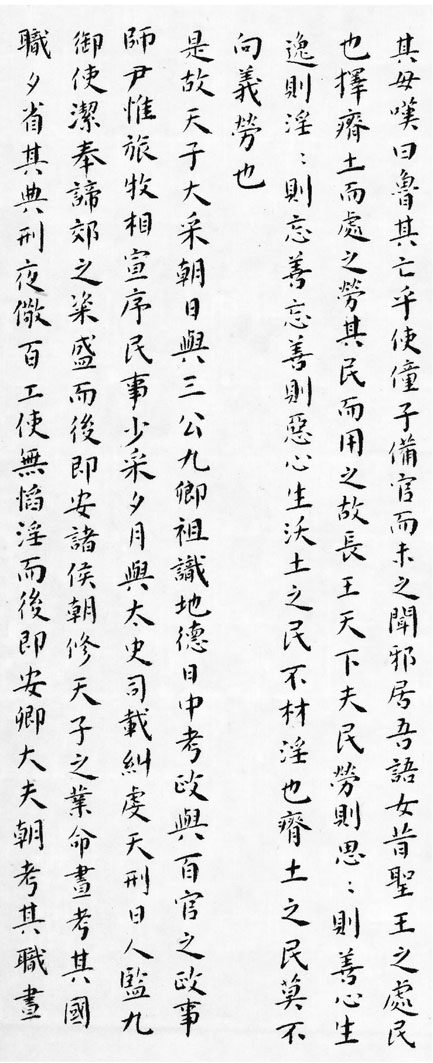 其母嘆曰魯其亡乎使僮子備官而未之聞邪居吾語女昔聖王之處民
也擇瘠土而處之勞其民而用之故長王天下夫民勞則思〻則善心生
逸則淫〻則忘善忘善則惡心生沃土之民不材淫也瘠土之民莫不
向義勞也
是故天子大采朝日與三公九卿祖識地德日中考政與百官之政事
師尹惟旅牧相宣序民事少采夕月與太史司載糾虔天刑日入監九
御使潔奉諦郊之粢盛而後即安諸侯朝修天子之業命晝考其國
職夕省其典刑夜儆百工使無慆淫而後即安卿大夫朝考其職晝